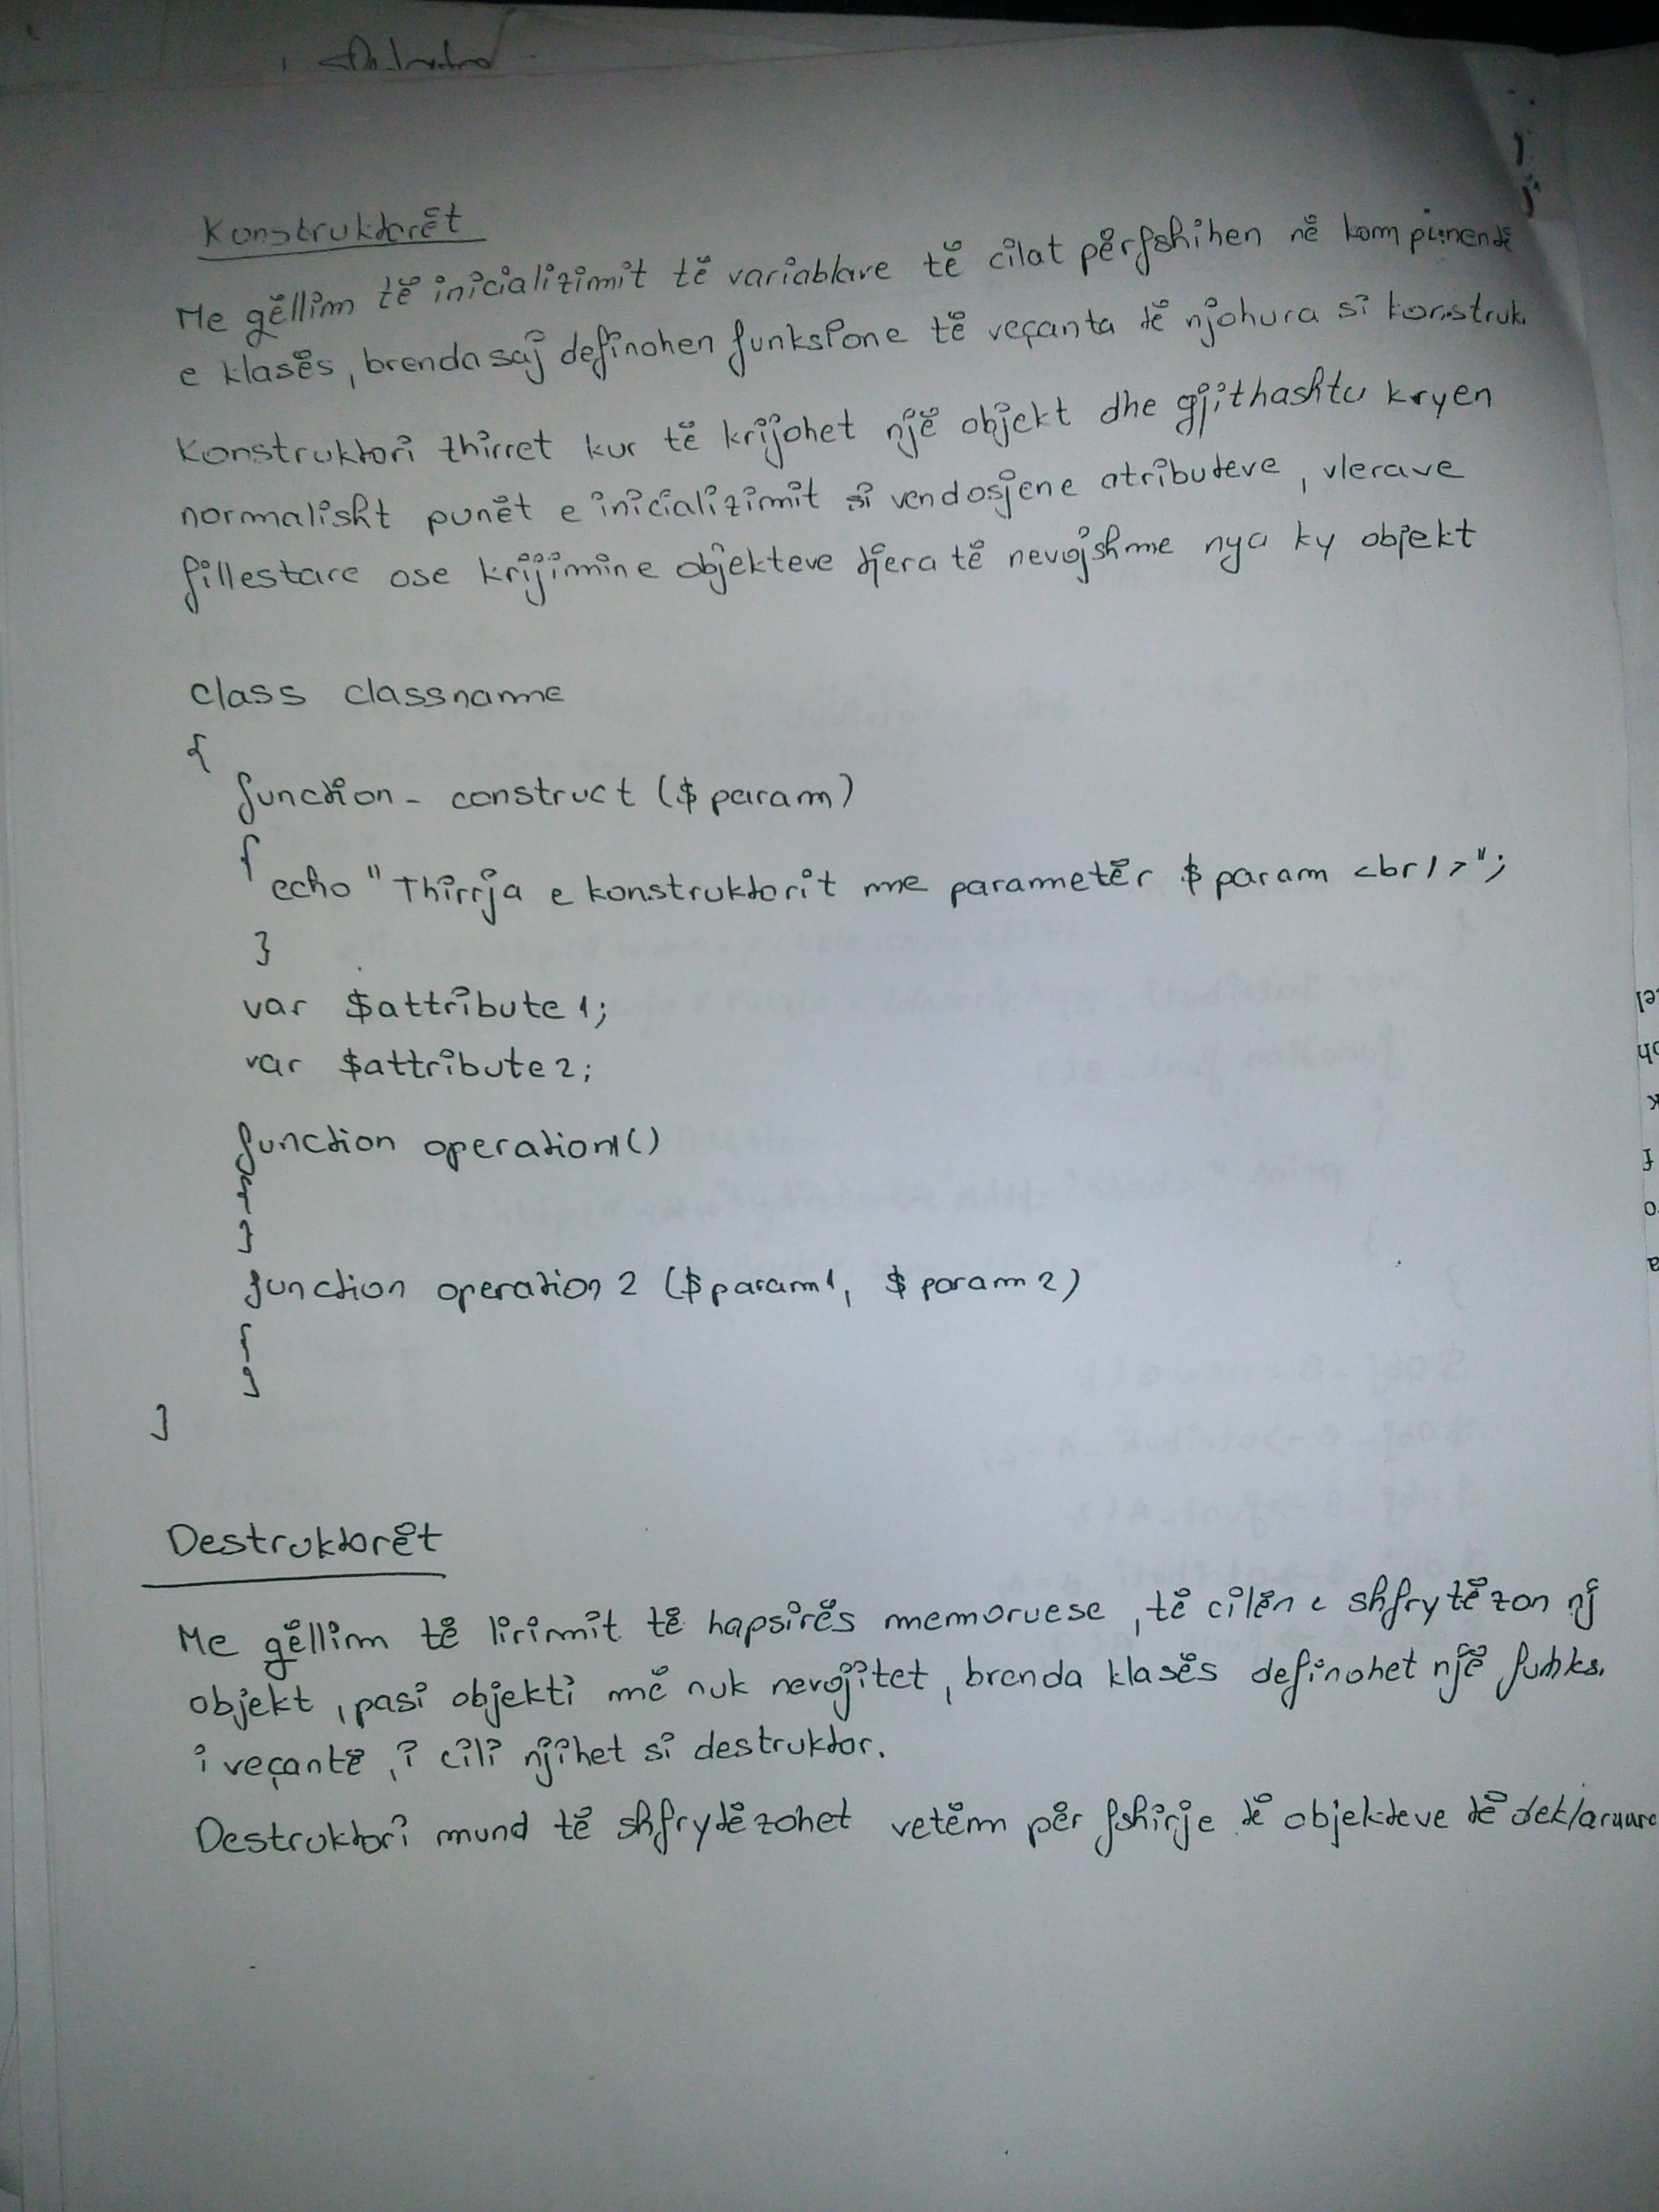 Konstruktorët
Me qëllim të inicializimit të variablave të cilat përfshihen në komponentë
e klasës, brenda saj definohen funksione të veçanta të njohura si konstruk
Konstruktori thirret kur të krijohet një objekt dhe gjithashtu kryen
normalisht punët e inicializimit si vendosjene atributeve, vlerave
fillestare ose krijimin e objekteve tjera të nevojshme nga ky objekt
class classname
{
function - construct ($ param)
{
echo "Thirrja e konstruktorit me parametër $ param <br/>";
}
var $attribute 1;
var $attribute 2;
function operation1()
{
}
function operation 2 ($param1, $ param 2)
{
}
}
Destruktorët
Me qëllim të lirimit të hapsirës memoruese, të cilën e shfrytëzon nj
objekt, pasi objekti më nuk nevojitet, brenda klasës definohet një funks.
i veçantë, i cili njihet si destruktor.
Destruktori mund të shfrytëzohet vetëm për fshirje të objekteve të deklaruara